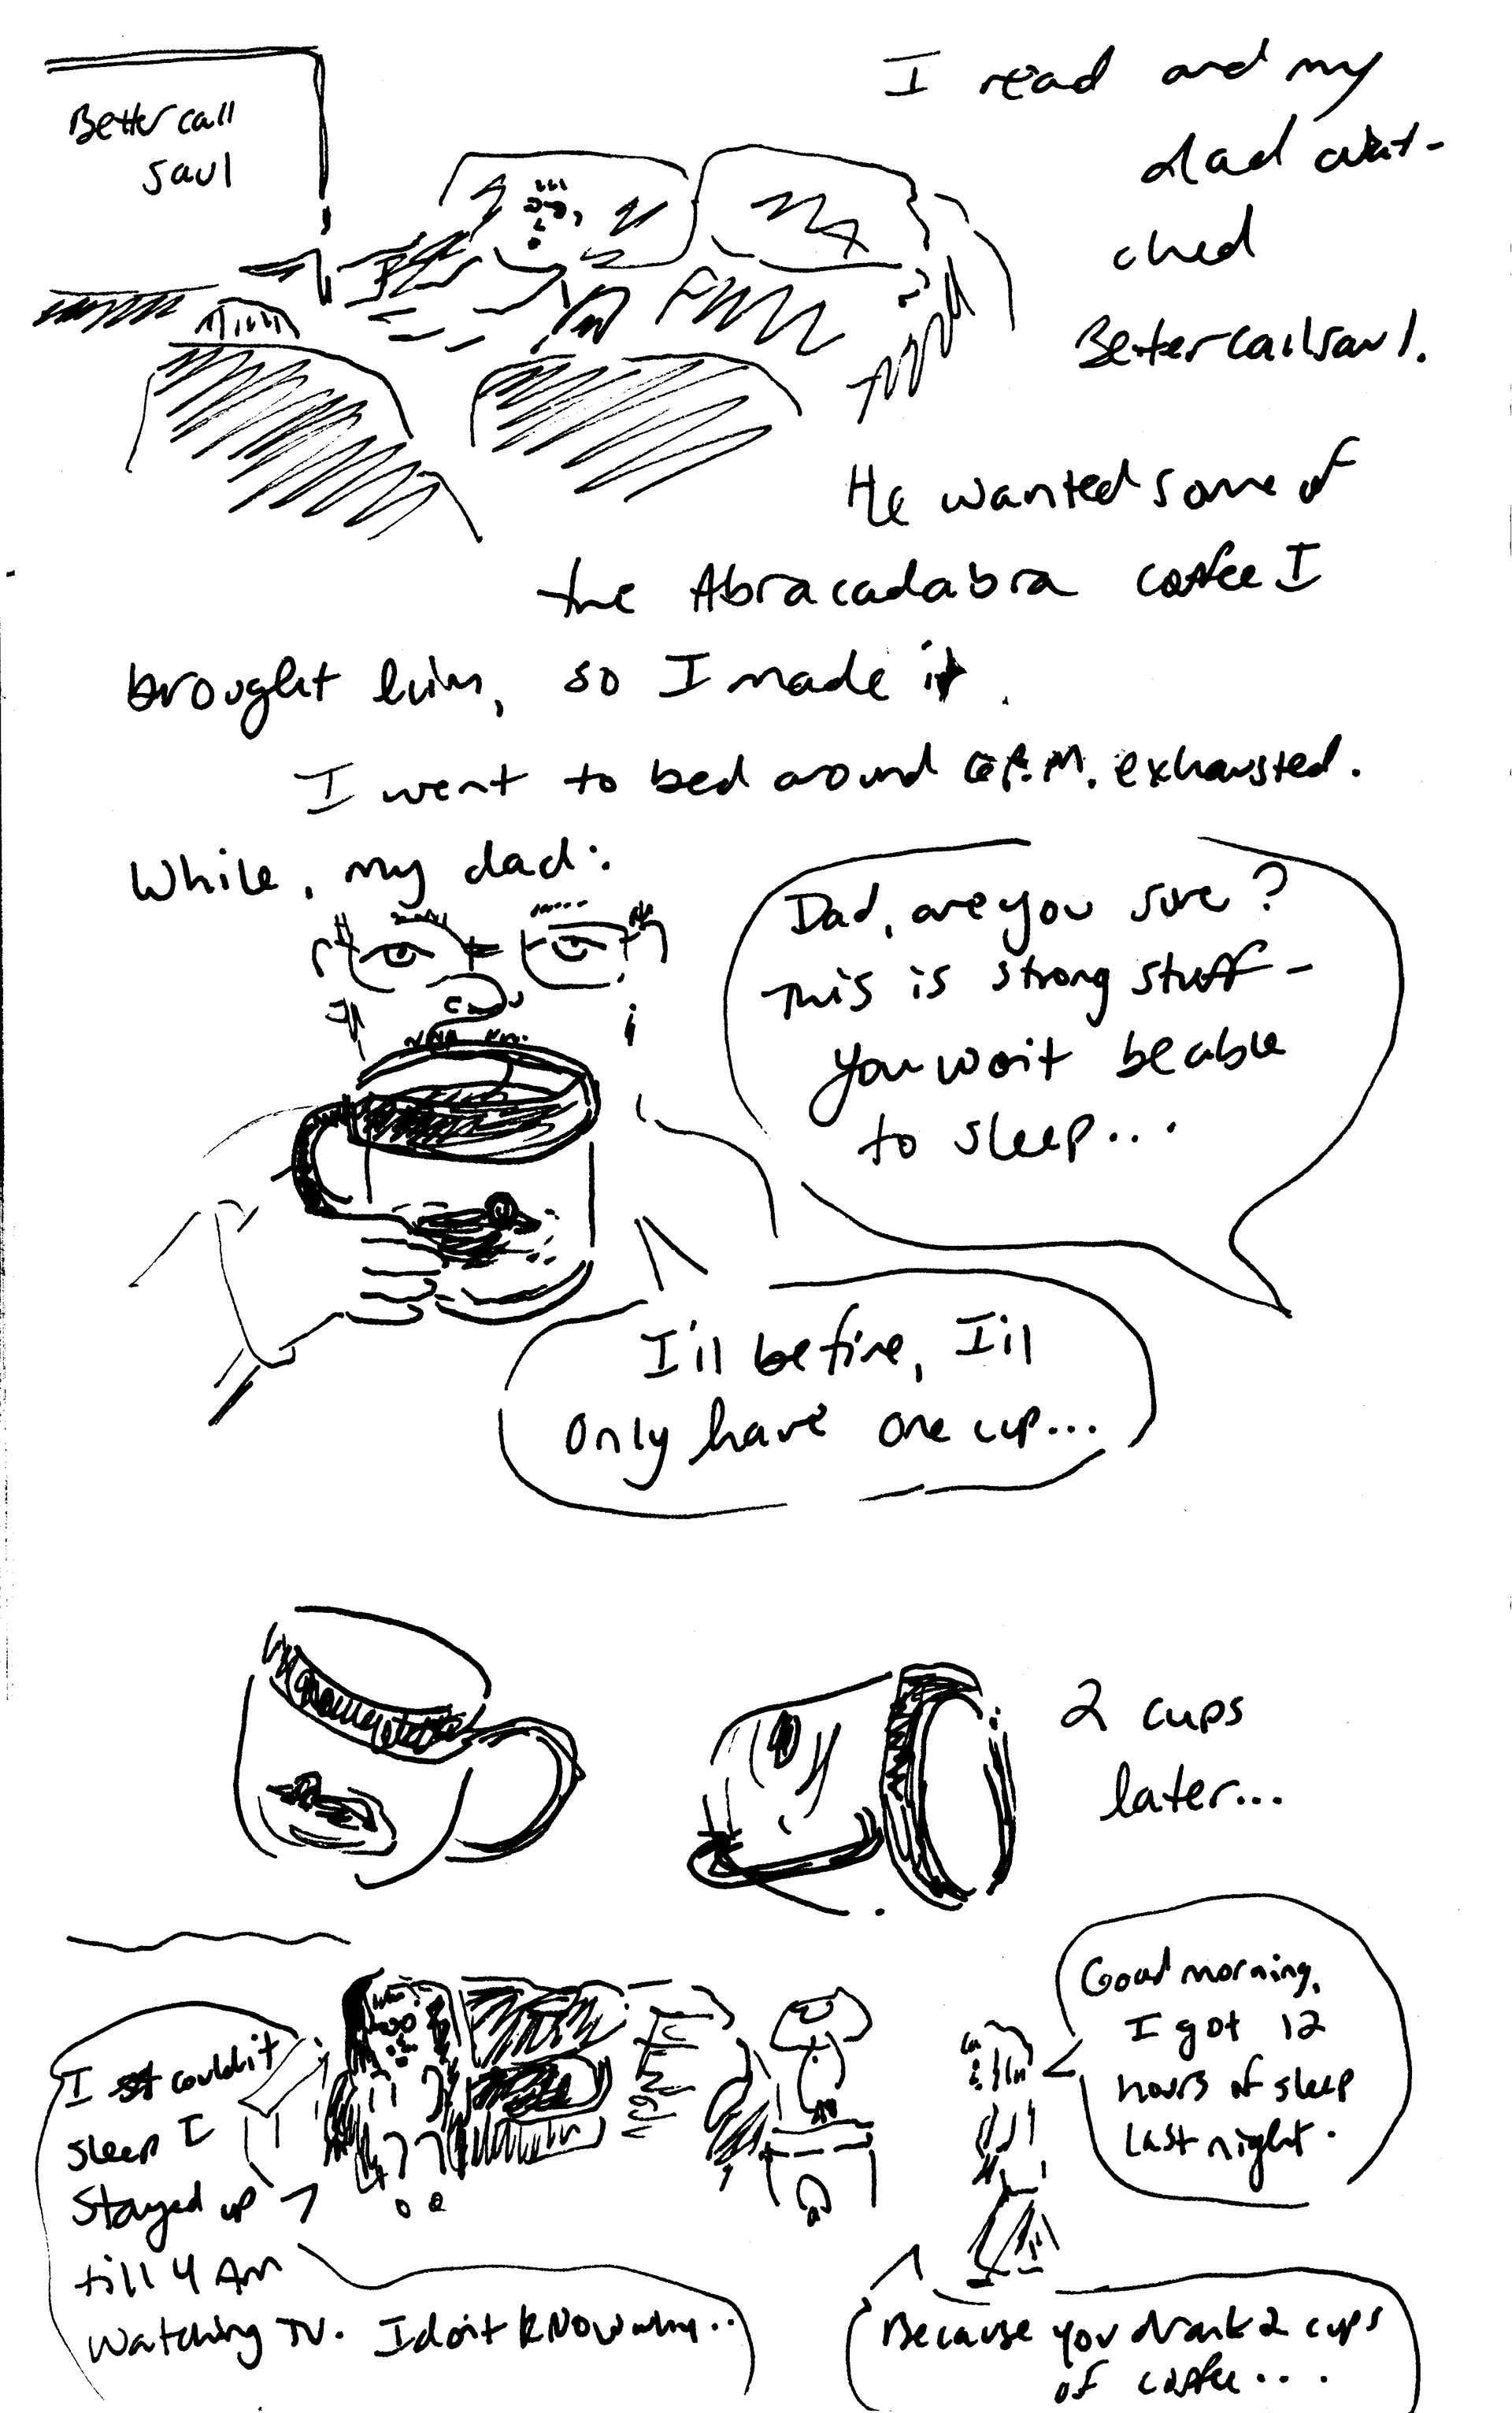 Better call
Saul
I read and my
dad wat-
ched
Better call Saul.
He wanted some of
the Abracadabra coffee I
brought him, so I made it.
I went to bed around P.M. exhausted.
While, my dad:
Dad, are you sure?
This is strong stuff -
you won't be able
to sleep...
I'll be fine, I'll
only have one cup...
2 cups
later...
Good morning,
I got 12
hours of sleep
last night.
I couldn't
sleep I
stayed up
till 4 AM
watching TV. I don't know why..
Because you drank 2 cups
of coffee....